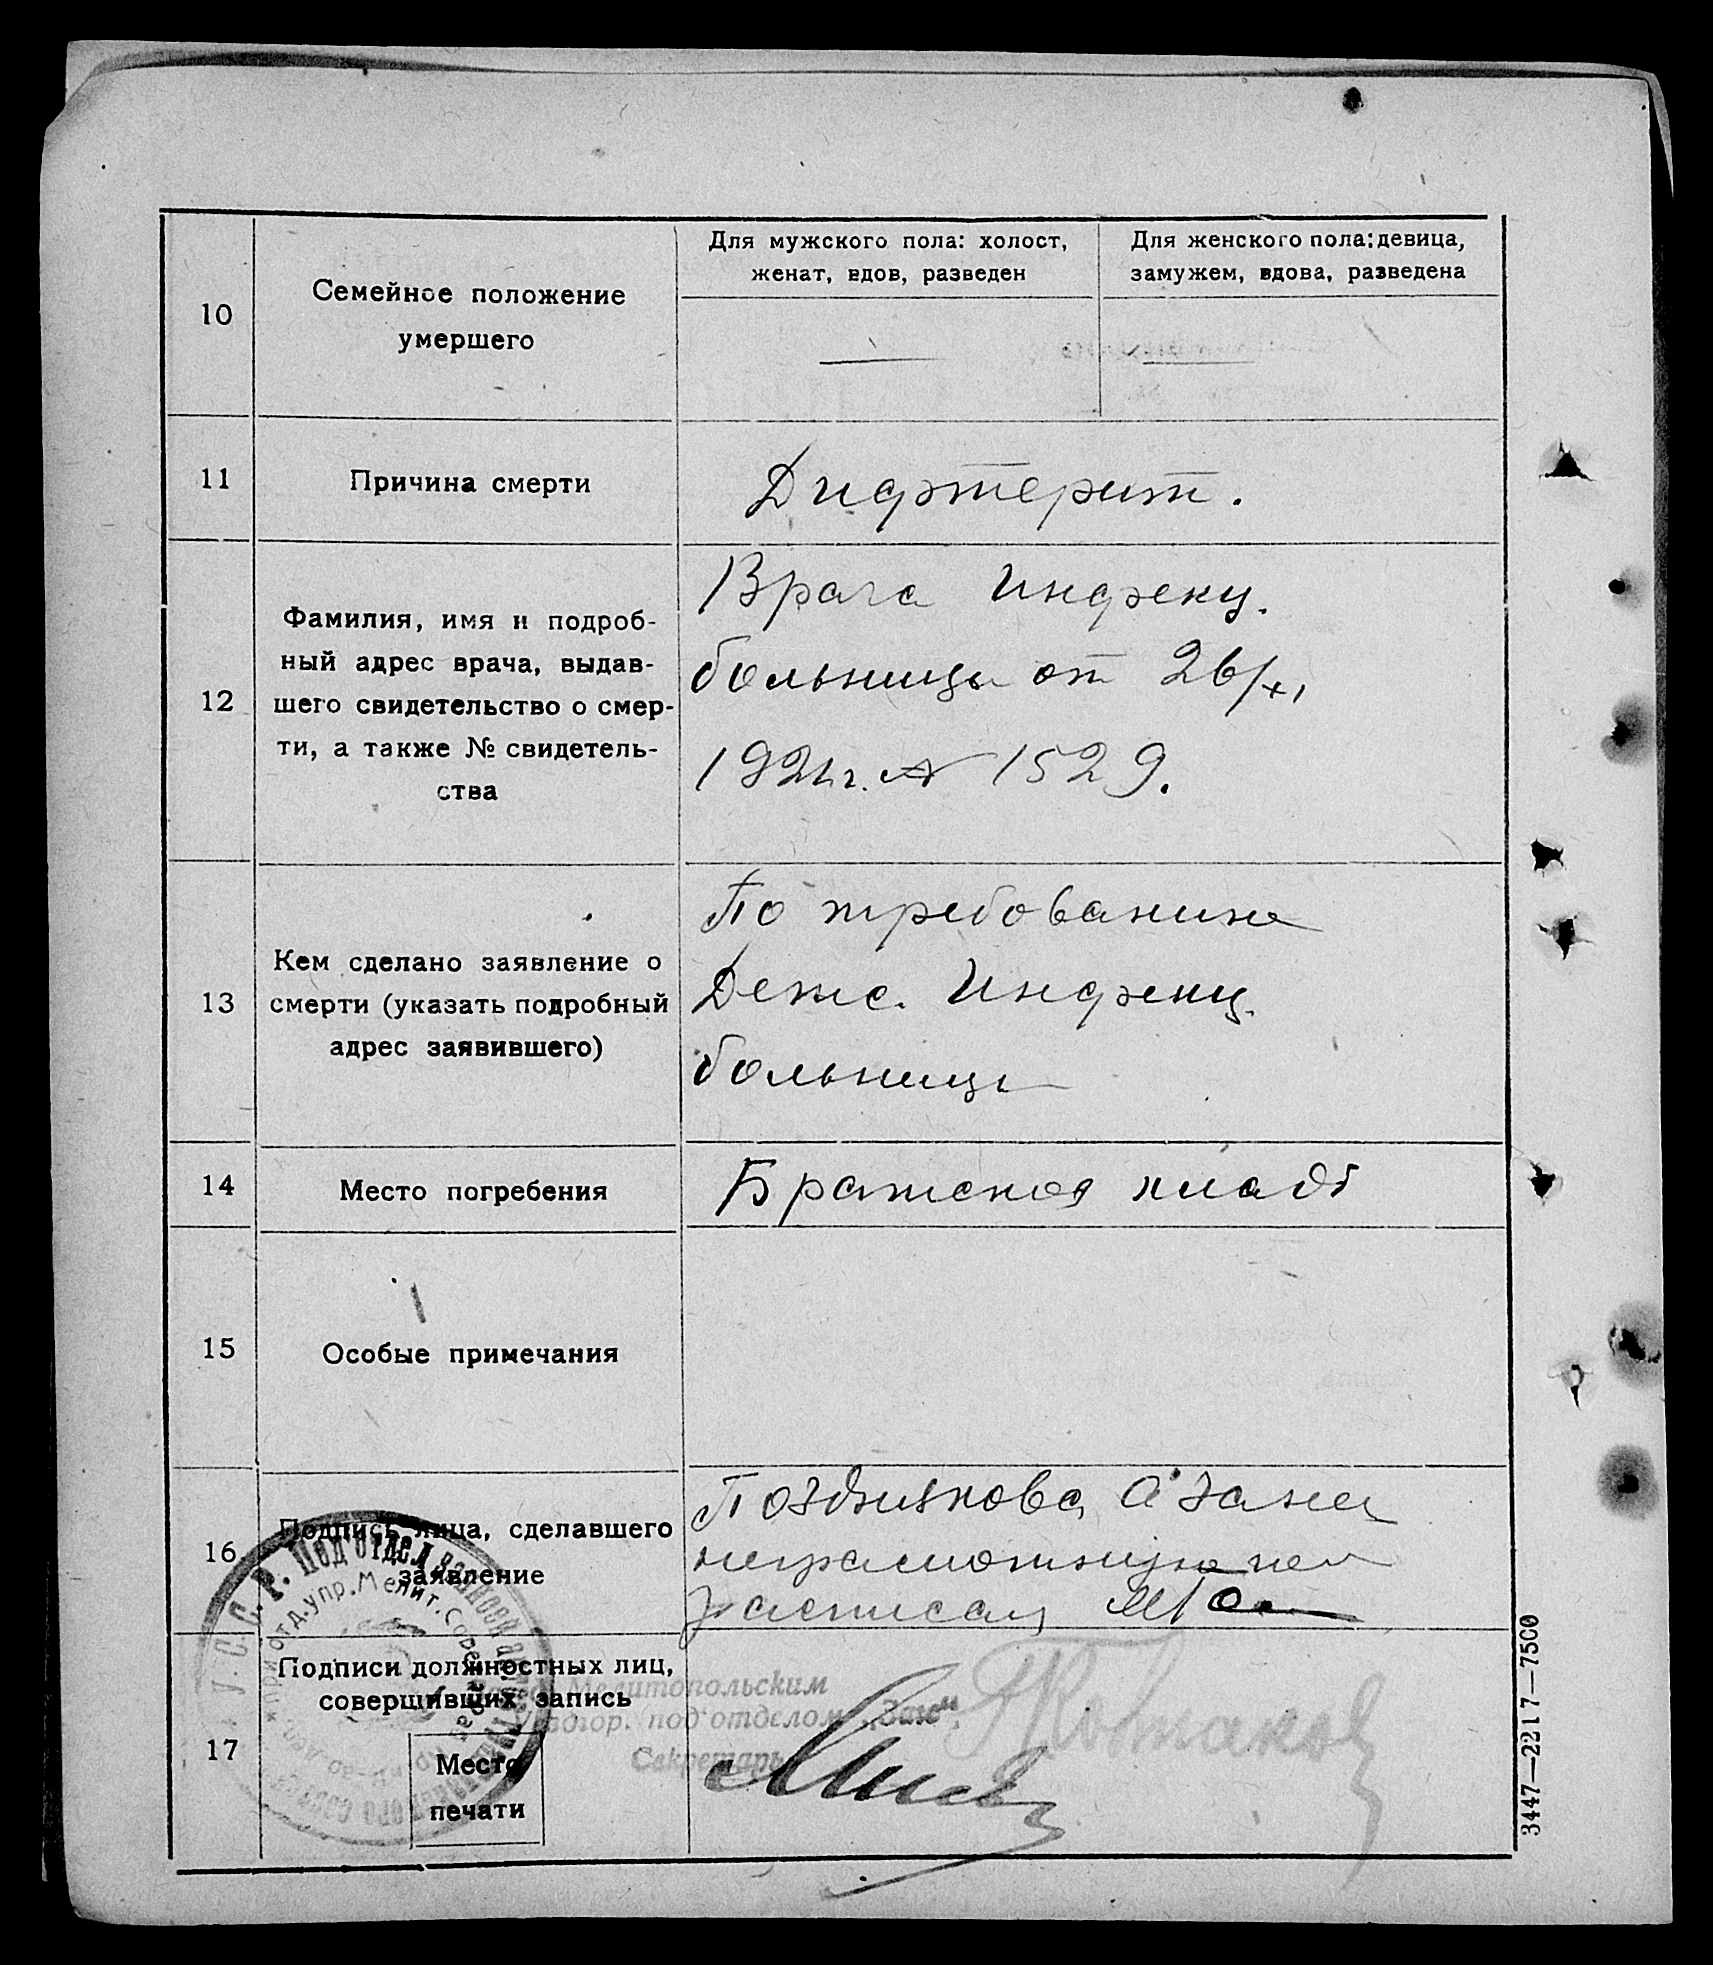 10
Семейное положение
умершего
Для мужского пола: холост,
женат, вдов, разведен
Для женского пола: девица,
замужем, вдова, разведена
11
Причина смерти
Дифтерит.
12
Фамилия, имя и подроб-
ный адрес врача, выдав-
шего свидетельство о смер-
ти, а также № свидетель-
ства
Врача Инфекц.
больницы от 26/XI
192 г. № 1529.
13
Кем сделано заявление о
смерти (указать подробный
адрес заявившего)
По требованию
Детс. Инфекц.
больницы
14
Место погребения
Братское кладб
15
Особые примечания
16
Подпись лица, сделавшего
заявление
Позднякова, а за нея
неграмотную
расписал
17
Подписи должностных лиц,
совершивших запись
Место
печати
Мелитопольским
под'отделом „Загс"
Секретарь
У. С. С. Р. Под'отдел
отд. упр. Мелит.
3447—2217—7500